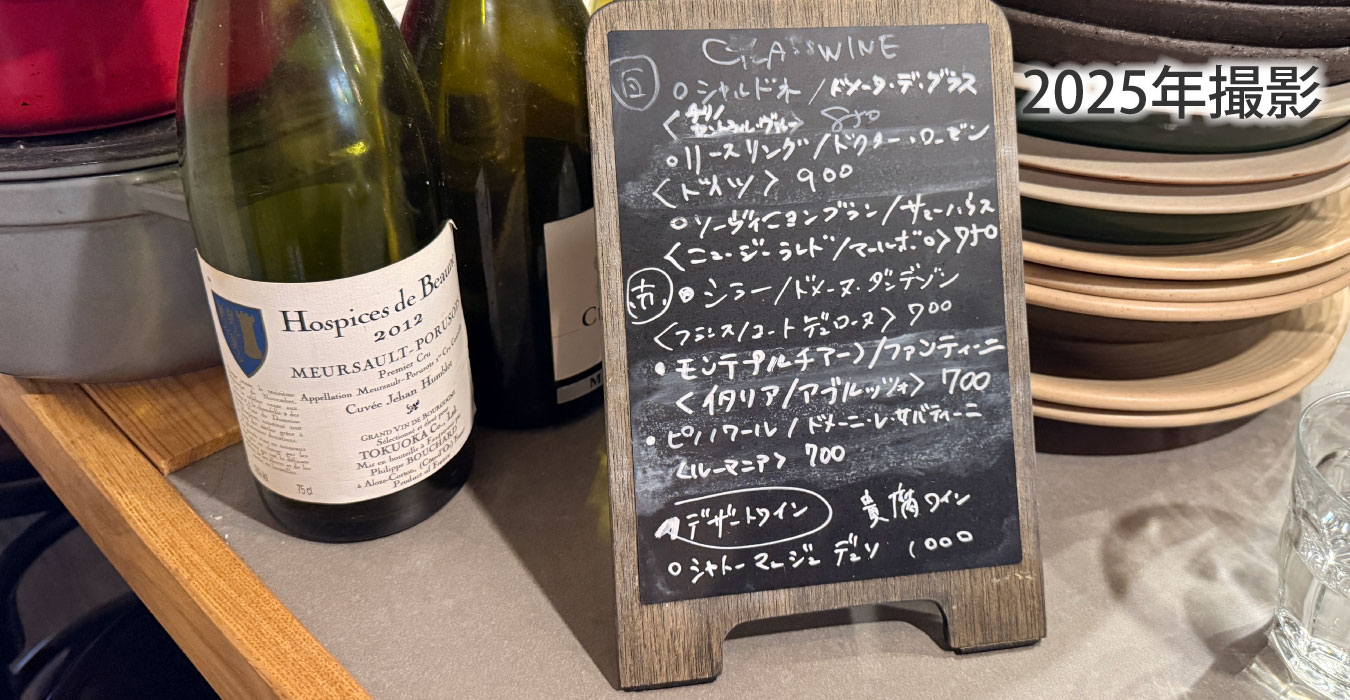 2025年撮影
GLASSWINE
白
○シャルドネ/ドメーヌ・デ・グラス
<チリ/セントラル・ヴァレー> 850
○リースリング/ドクター・ローゼン
<ドイツ> 900
○ソーヴィニヨンブラン/サミーハウス
<ニュージーランド/マールボロ> 950
赤
●シラー/ドメーヌ・ダンデゾン
<フランス/コートデュローヌ> 900
●モンテプルチアーノ/ファンティーニ
<イタリア/アブルッツォ> 700
●ピノノワール/ドメーニ・レ・サバティーニ
<ルーマニア> 700
デザートワイン 貴腐ワイン
○シャトー マージュ デュソ 1000
Hospices de Beaune
2012
MEURSAULT-PORUSOTS
Premier Cru
Appellation Meursault-Porusots 1er Cru
Cuvée Jehan Humblot
GRAND VIN DE BOURGOGNE
Sélectionné et élevé pour
TOKUOKA Co., Ltd.
Mis en bouteille à
Philippe BOUCHARD
à Aloxe-Corton, (Côte d'Or) France
Product of France
75cl